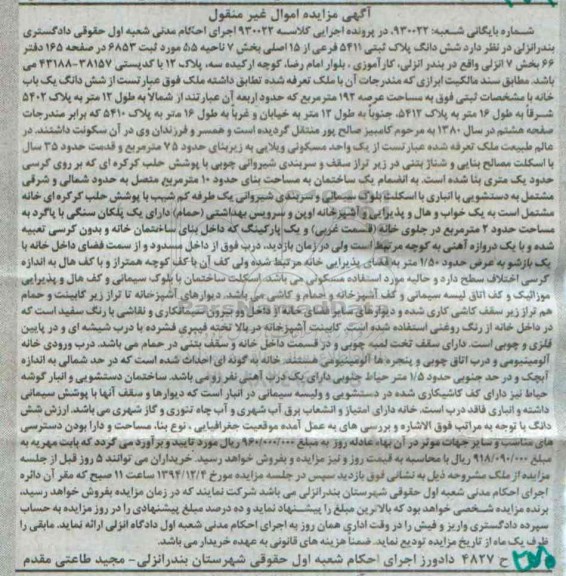 آگهی مزایده اموال غیر منقول
شماره بایگانی شعبه: ۹۳۰۰۲۲، در پرونده اجرایی کلاسه ۹۳۰۰۲۲ اجرای احکام مدنی شعبه اول حقوقی دادگستری
بندرانزلی در نظر دارد شش دانگ پلاک ثبتی ۵۴۱۱ فرعی از ۱۵ اصلی بخش ۷ ناحیه ۵،۵ مورد ثبت ۶۸۵۳ در صفحه ۱۶۵ دفتر
۶۶ بخش ۷ انزلی واقع در بندر انزلی، کارآموزی، بلوار امام رضا، کوچه ارکیده سه، پلاک ۱۲ با کدپستی ۳۸۱۵۷-۴۳۱۸۸ می
باشد. مطابق سند مالکیت ابرازی که مندرجات آن با ملک تعرفه شده تطابق داشته ملک فوق عبارتست از شش دانگ یک باب
خانه با مشخصات ثبتی فوق به مساحت عرصه ۱۹۲ مترمربع که حدود اربعه آن عبارتند از شمالاً به طول ۱۲ متر به پلاک ۵۴۰۲
شرقاً به طول ۱۶ متر به پلاک ۵۴۱۲، جنوباً به طول ۱۲ متر به خیابان و غرباً به طول ۱۶ متر به پلاک ۵۴۱۰ که برابر مندرجات
صفحه هشتم در سال ۱۳۸۰ به مرحوم کامبیز صالح پور منتقل گردیده است و همسر و فرزندان وی در آن سکونت داشتند. در
عالم طبیعت ملک تعرفه شده عبارتست از یک واحد مسکونی ویلایی به زیربنای حدود ۷۵ مترمربع و قدمت حدود ۳۵ سال
با اسکلت مصالح بنایی و شناژ بتنی در زیر تراز سقف و سربندی شیروانی چوبی با پوشش حلب کرکره ای که بر روی کرسی
حدود یک متری بنا شده است. به انضمام یک ساختمان به مساحت بنای حدود ۱۰ مترمربع متصل به حدود شمالی و شرقی
مشتمل به دستشویی با انباری با اسکلت بلوک سیمانی و سربندی شیروانی یک طرفه کم شیب با پوشش حلب کرکره ای خانه
مشتمل است به یک خواب و هال و پذیرایی و آشپزخانه اوپن و سرویس بهداشتی (حمام) دارای یک پلکان سنگی با پاگرد به
مساحت حدود ۲ مترمربع در جلوی خانه (قسمت غربی) و یک پارکینگ که داخل بنای ساختمان خانه و بدون کرسی تعبیه
شده و با یک دروازه آهنی به کوچه مرتبط است ولی در زمان بازدید، درب فوق از داخل مسدود و از سمت فضای داخل خانه با
یک بازشو به عرض حدود ۱/۵۰ متر به فضای پذیرایی خانه مرتبط شده ولی کف آن با کف کوچه همتراز و با کف هال به اندازه
کرسی اختلاف سطح دارد و حالیه مورد استفاده مسکونی می باشد. اسکلت ساختمان با بلوک سیمانی و کف هال و پذیرایی
موزائیک و کف اتاق لیسه سیمانی و کف آشپزخانه و حمام و کاشی می باشد. دیوارهای آشپزخانه تا تراز زیر کابینت و حمام
هم تراز زیر سقف کاشی کاری شده و دیوارهای سایر فضای خانه از داخل و بیرون سفیدکاری و نقاشی با رنگ سفید است که
در داخل خانه از رنگ روغنی استفاده شده است. کابینت آشپزخانه در بالا تخته فیبری فشرده با درب شیشه ای و در پایین
فلزی و چوبی است. دارای سقف تخت لمبه چوبی و در قسمت داخل خانه و سقف بتنی در حمام می باشد. درب ورودی خانه
آلومینیومی و درب اتاق چوبی و پنجره ها آلومینیومی هستند. خانه به گونه ای احداث شده است که در حد شمالی به اندازه
آبچک و در حد جنوبی حدود ۱/۵ متر حیاط جنوبی دارای یک درب آهنی نفر رو می باشد. ساختمان دستشویی و انبار گوشه
حیاط نیز دارای کف کاشیکاری شده در دستشویی و ولیسه سیمانی در انبار است که دیوارها و سقف آنها با پوشش سیمانی
داشته و انباری فاقد درب است. خانه دارای امتیاز و انشعاب برق آب شهری و آب چاه تنوری و گاز شهری می باشد. ارزش شش
دانگ با توجه به مراتب فوق الاشاره و بررسی های به عمل آمده موقعیت جغرافیایی، نوع بنا، مساحت و دارا بودن دسترسی
های مناسب و سایر جهات موثر در آن بهاء عادله روز به مبلغ ۹۶۰/۰۰۰/۰۰۰ ریال مورد تایید و برآورد می گردد که بابت مهریه به
مبلغ ۹۱۸/۰۹۰/۰۰۰ ریال با محاسبه به قیمت روز و نیز مزایده و بفروش خواهد رسید. خریداران می توانند ۵ روز قبل از جلسه
مزایده از ملک مشروحه ذیل به نشانی فوق بازدید سپس در جلسه مزایده مورخ ۱۳۹۴/۱۲/۴ ساعت ۱۱ صبح که مقر آن دائره
اجرای احکام مدنی شعبه اول حقوقی شهرستان بندرانزلی می باشد شرکت نمایند که در زمان مزایده بفروش خواهد رسید،
برنده مزایده شخصی خواهد بود که بالاترین مبلغ را پیشنهاد نماید و ده درصد مبلغ پیشنهادی را در روز مزایده به حساب
سپرده دادگستری واریز و فیش را در وقت اداری همان روز به اجرای احکام مدنی شعبه اول دادگاه انزلی ارائه نماید. مابقی را
ظرف یک ماه از تاریخ مزایده تودیع نماید. ضمناً هزینه های قانونی به عهده خریدار می باشد.
ح ۴۸۲۷ دادورز اجرای احکام شعبه اول حقوقی شهرستان بندرانزلی - مجید طاعتی مقدم